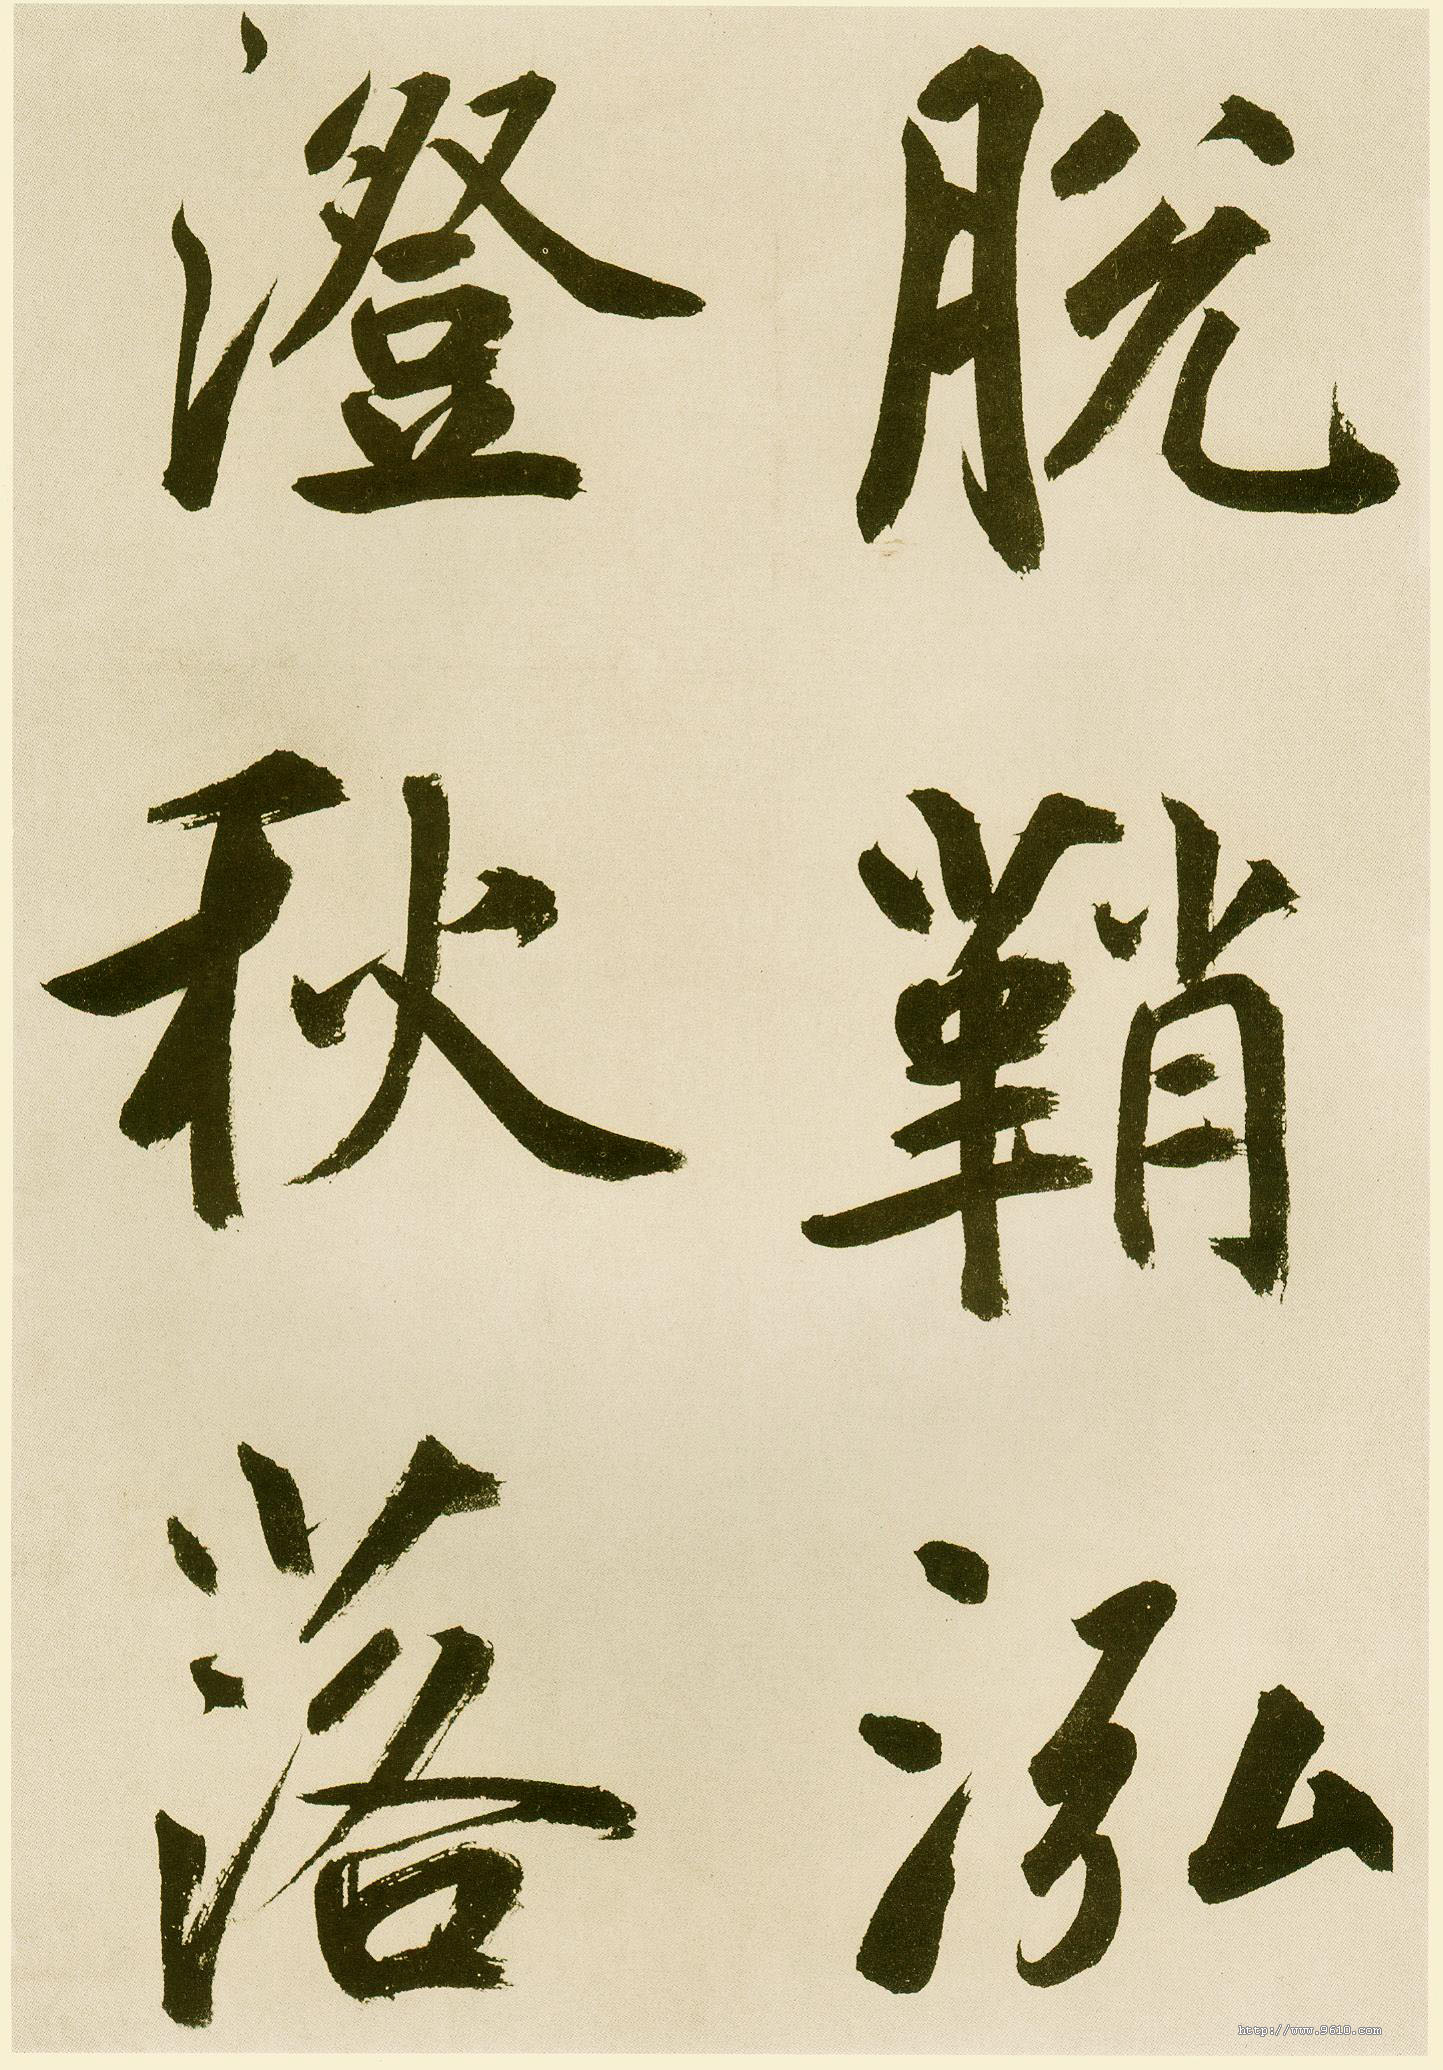 脱鞘泓
澄秋落
http://www.9610.com